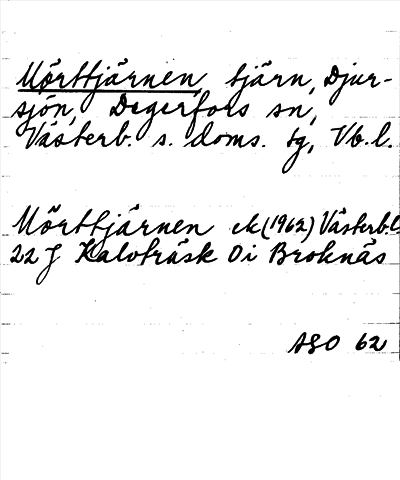 Mörttjärnen, tjärn, Djur-
sjön, Degerfors sn,
Västerb. s. doms. tg, Vb.l.
Mörttjärnen ek (1962) Västerb.l.
22 J Kalvträsk 0i Broknäs
ASO 62